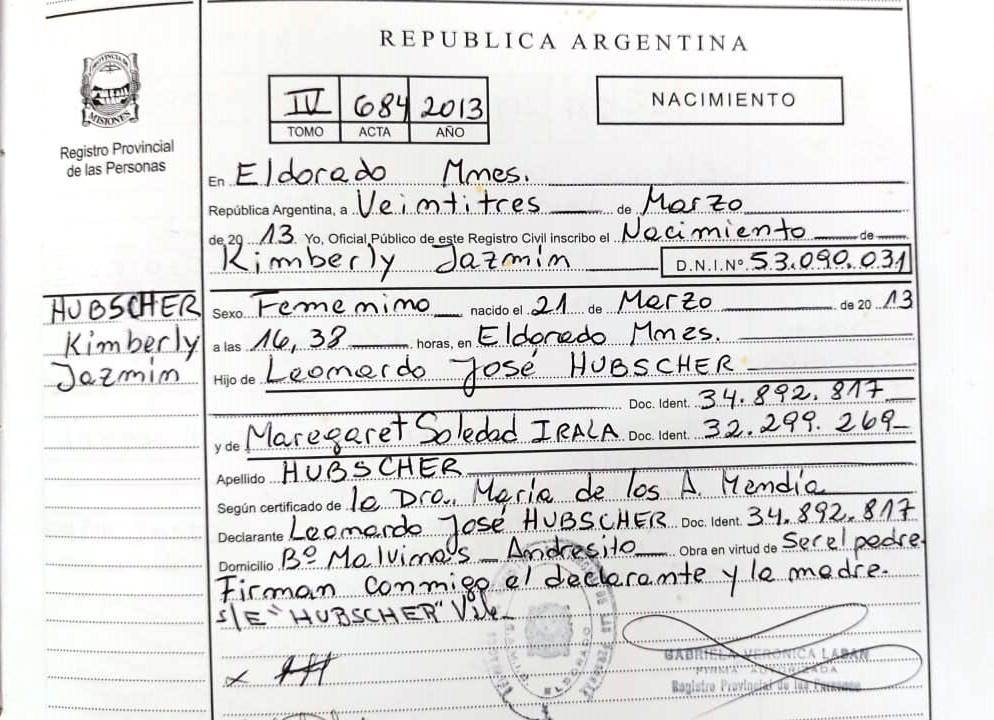 REPUBLICA ARGENTINA
PROVINCIA DE
MISIONES
Registro Provincial
de las Personas
IV 684 2013
TOMO ACTA AÑO
NACIMIENTO
En Eldorado Mnes.
República Argentina, a Veintitres de Marzo
de 20 13 Yo, Oficial Público de este Registro Civil inscribo el Nacimiento de
Kimberly Jazmín D.N.I.Nº 53.090.031
HUBSCHER
Kimberly
Jazmín
Sexo Femenino nacido el 21 de Marzo de 20 13
a las 16,38 horas, en Eldorado Mnes.
Hijo de Leonardo José HUBSCHER
Doc. Ident. 34.892.817
y de Maregaret Soledad IRALA Doc. Ident. 32.299.269
Apellido HUBSCHER
Según certificado de la Dra. María de los A. Mendía
Declarante Leonardo José HUBSCHER Doc. Ident. 34.892.817
Domicilio Bº Malvinas - Andresito Obra en virtud de Ser el padre
Firman conmigo el declarante y la madre.
s/E "HUBSCHER" Vile
x
ELDORADO
GABRIELA VERONICA LABAN
Registro Provincial de las Personas